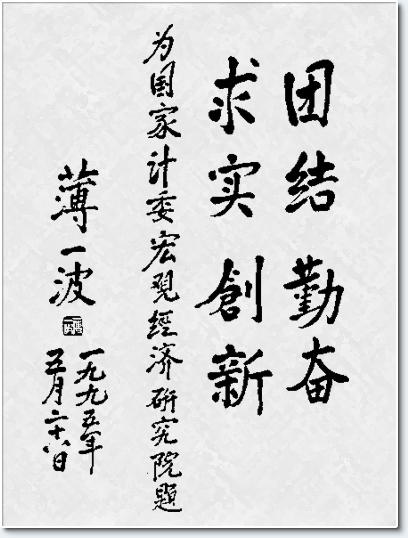 团结 勤奋
求实 創新
为国家计委宏观經济研究院题
薄一波
一九九五年
五月二十八日